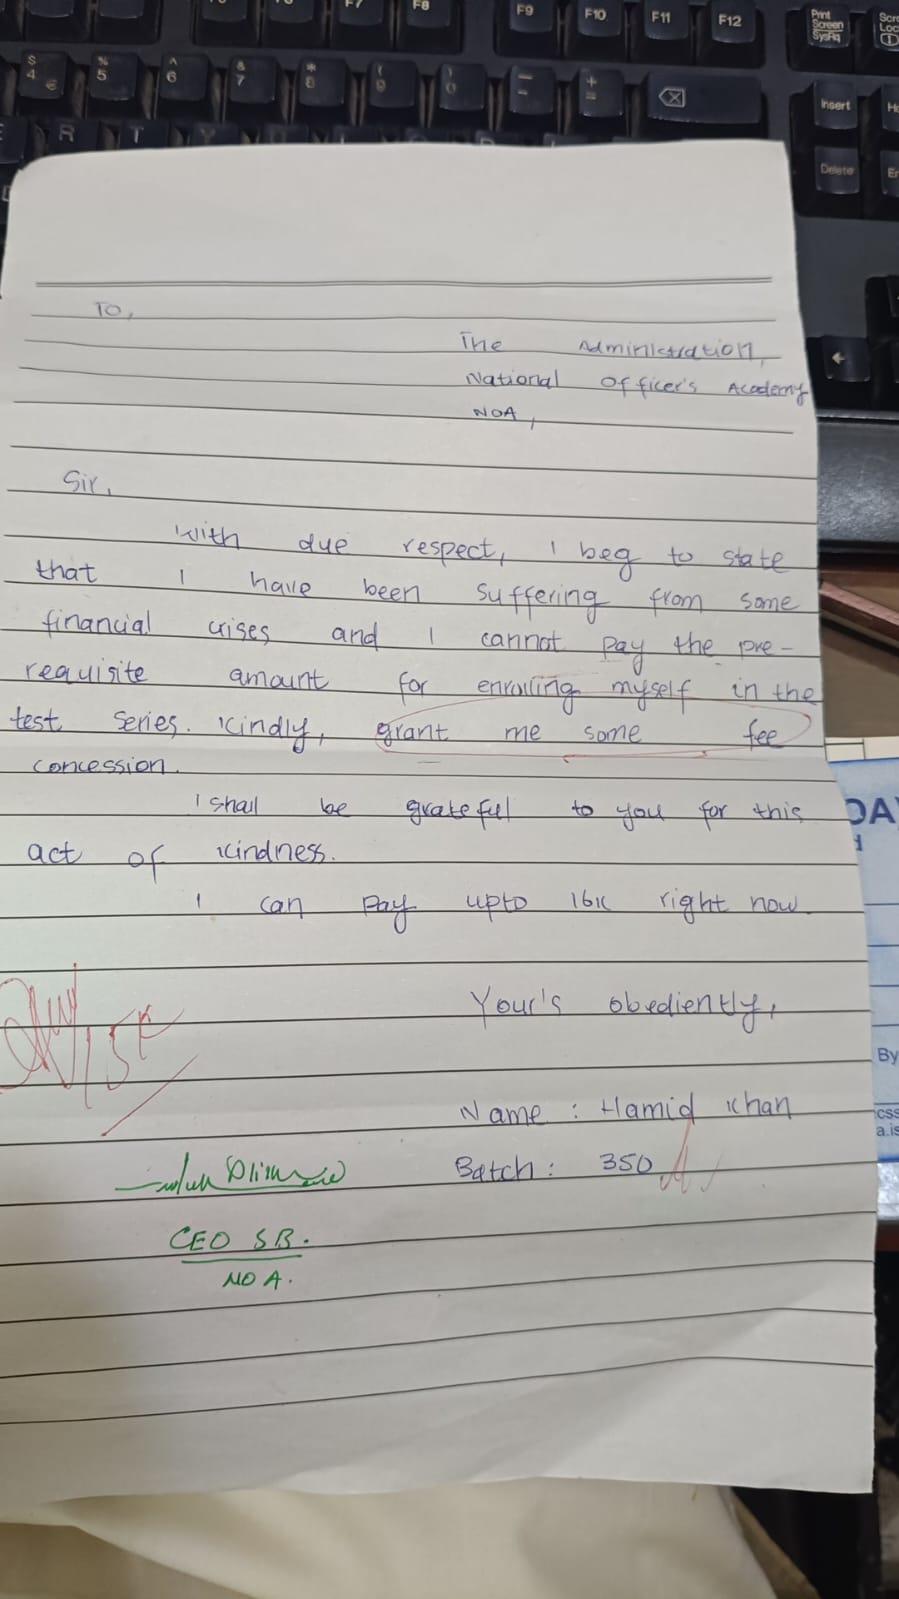 F7 F8 F9 F10 F11 F12 Print Screen SysRq
$ 4 € % 5 ^ 6 & 7 * 8 ( 9 ) 0 _ - + =
Insert
R T Y
Delete
To,
The Administration,
National Officer's Academy
NOA,
Sir,
With due respect, I beg to state
that I have been suffering from some
financial crises and I cannot pay the pre-
requisite amount for enrolling myself in the
test series. Kindly, grant me some fee
concession.
I shall be grateful to you for this
act of kindness.
I can pay upto 16K right now.
Your's obediently,
15K
Name : Hamid Khan
Batch : 350
CEO SB.
NOA.
By
css
a.is